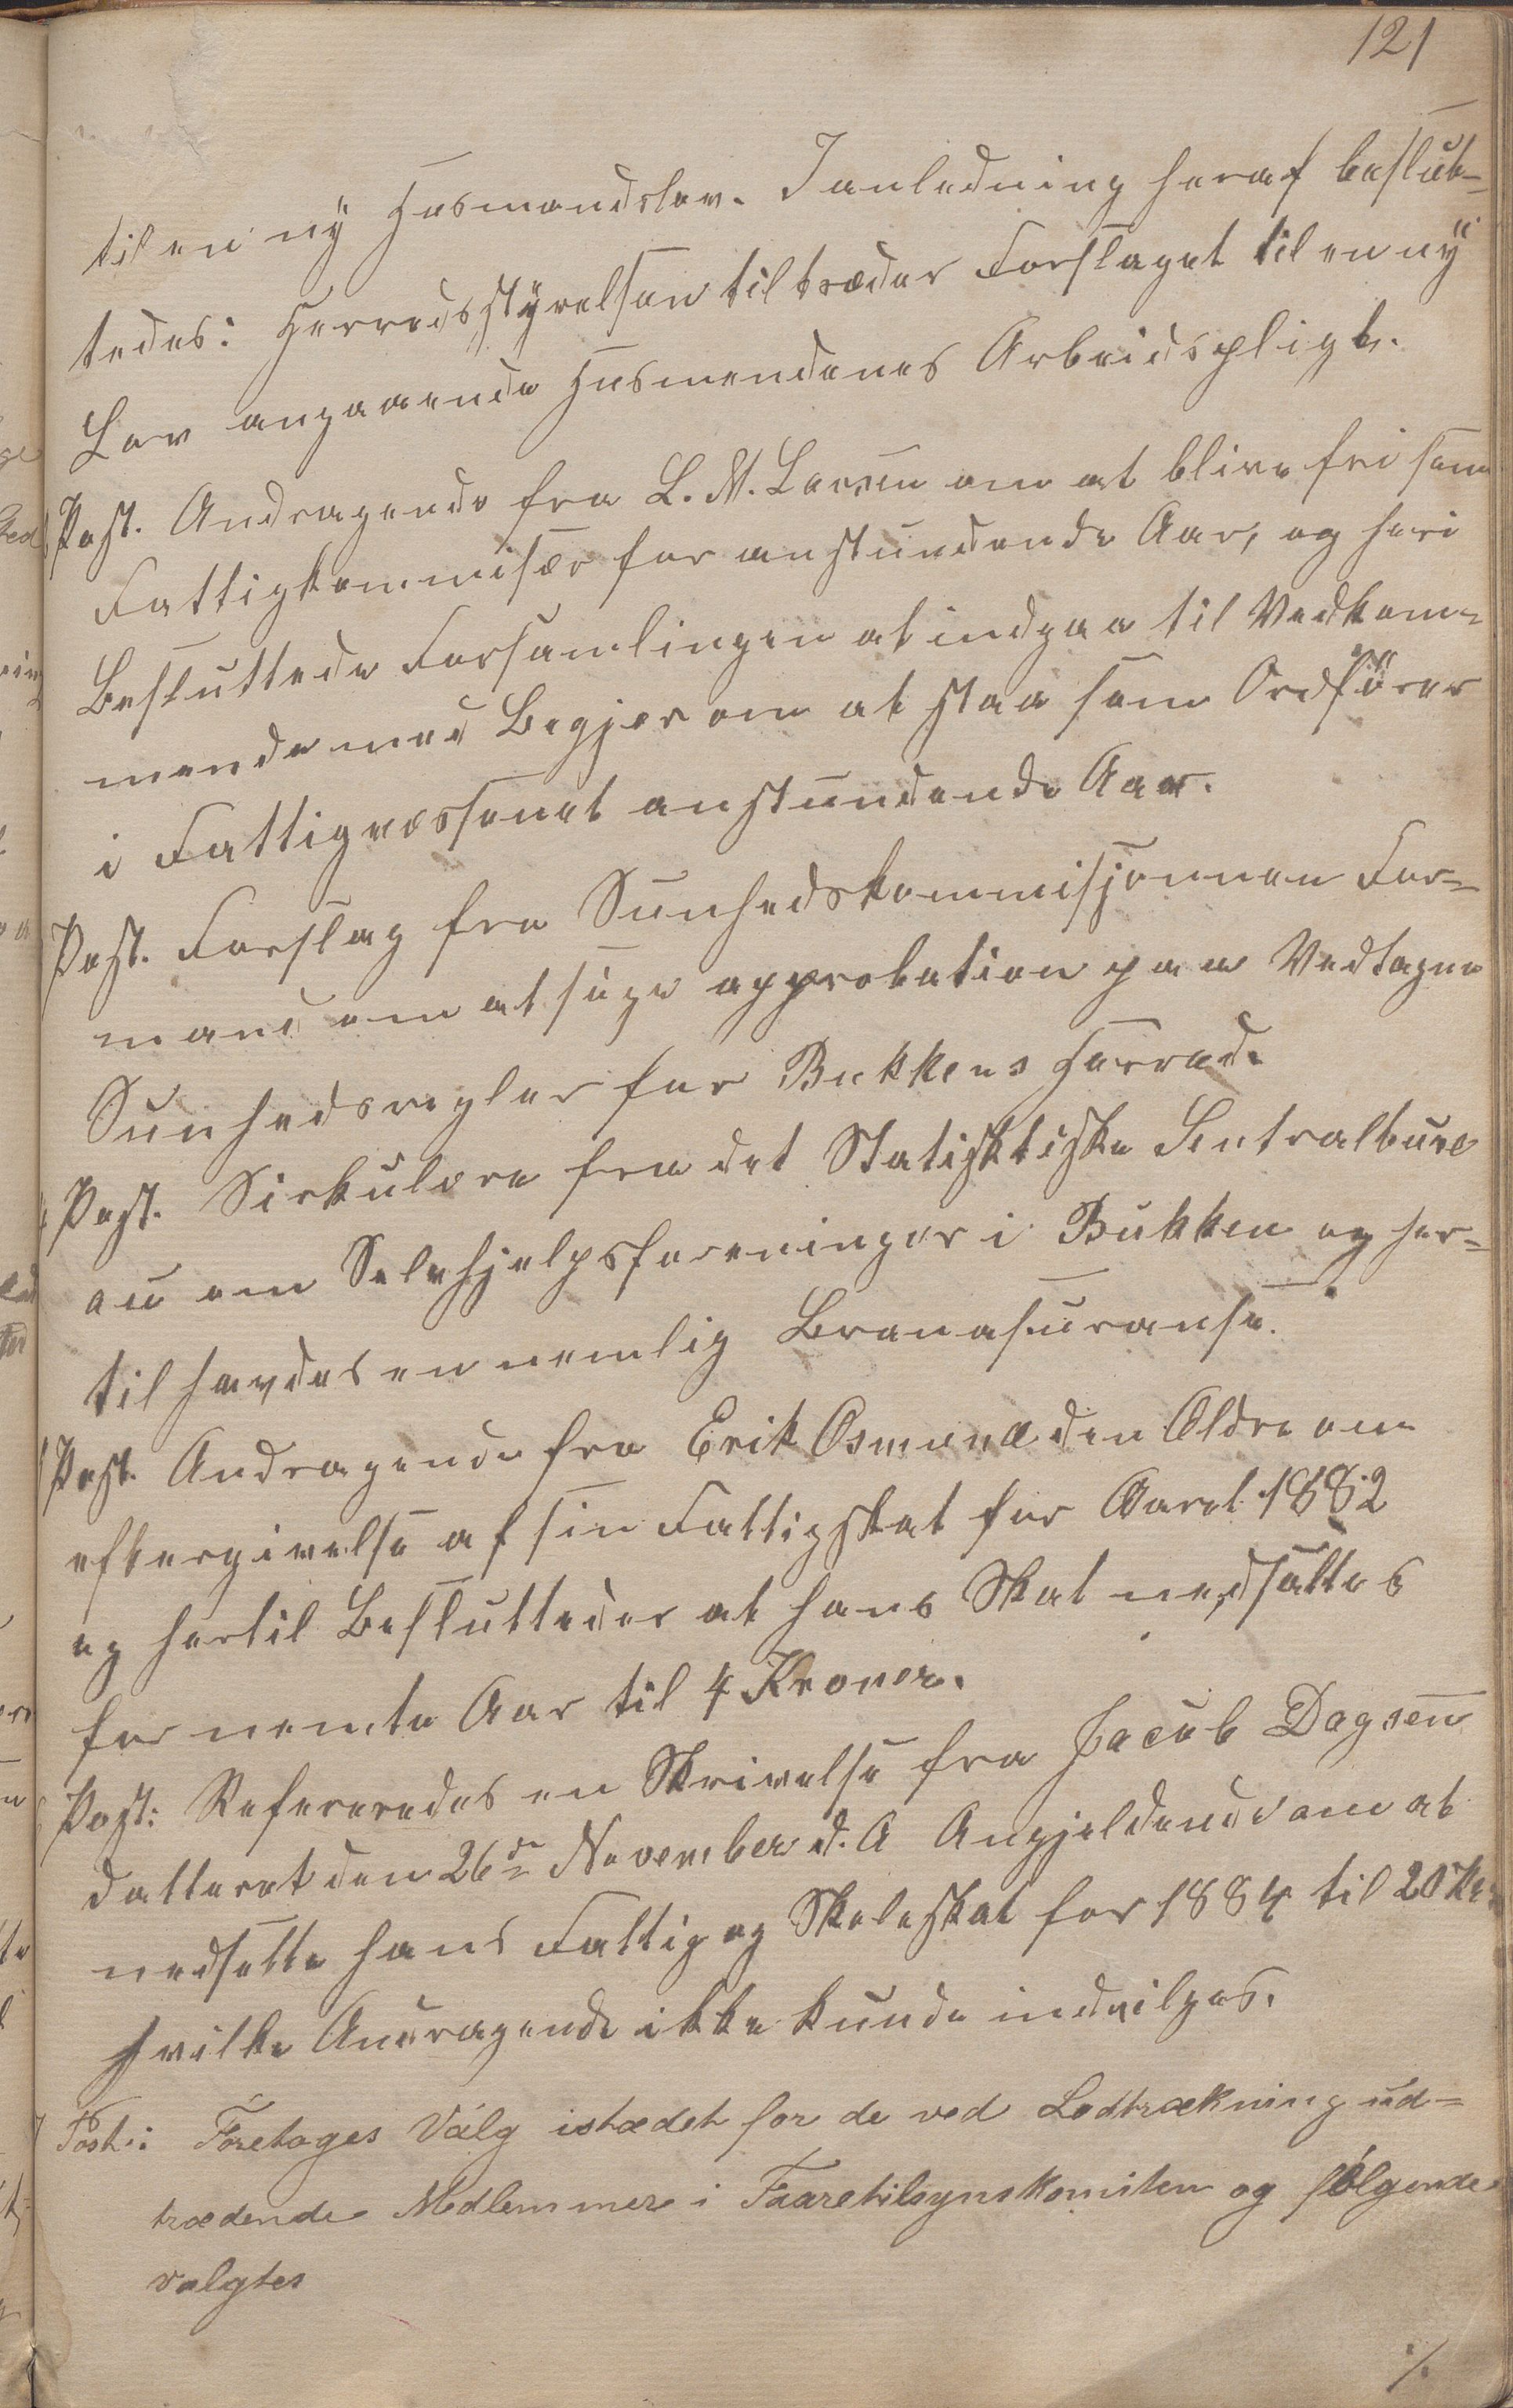 121
til en ny Husmandslov. Ianledning heraf beslut-
tedes: Herredsstyrelsen tiltræder Forslaget til en ny
Lov angaaende Husmendenes Arbeidspligt.
Post. Andragende fra L. M. Larsen om at blive fri som
Fattigkommisær for anstundende Aar, og heri
Besluttede Forsamlingen at indgaa til Vedkom-
mende med Begjer om at staa som Ordförer
i Fattigvæssenet anstundende Aar.
Post. Forslag fra Sunhedskommisjonnen For-
mand om at søge approbation paa Vedtagne
Sunhedsregler for Bukkens Herred.
Post. Sirkulære fra det Statisktiske Sentralbure
au om Selvhjelpsforeninger i Bukken og her-
til havdes en nemlig Branasuranse.
Post. Andragende fra Erik Osmund den Ældre om
eftergivelse af sin Fattigskat for Aaret 1882
og hertil Besluttedes at hans Skat nedsattes
for nemte Aar til 4 Kroner.
Post: Refereredes en Skrivelse fra Jacob Dagsen
datteret den 26de November d. A Angjeldende om at
nedsette hans Fattig og Skoleskat for 1884 til 20 Kr.
hvilke Andragende ikke kunde indvilges.
Post.: Foretoges Valg istædet for de ved Lodtrækning ud-
trædende Medlemmer i Faaretilsynskomiten og følgende
valgtes
./.